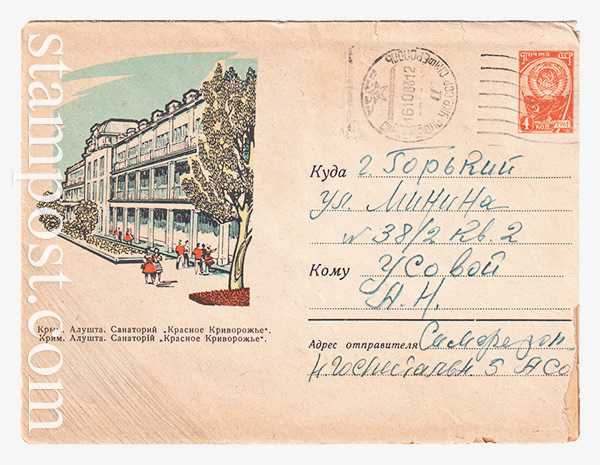 stampost.com
ПОЧТА СССР
4
КОП
1961
СИМФЕРОПОЛЬ
161063 12
Куда г. Горький
ул. Минина
№ 38/2 кв. 2
Кому Усовой
А. Н.
Адрес отправителя
5
Крым. Алушта. Санаторий „Красное Криворожье“.
Крим. Алушта. Санаторій „Красное Криворожье“.